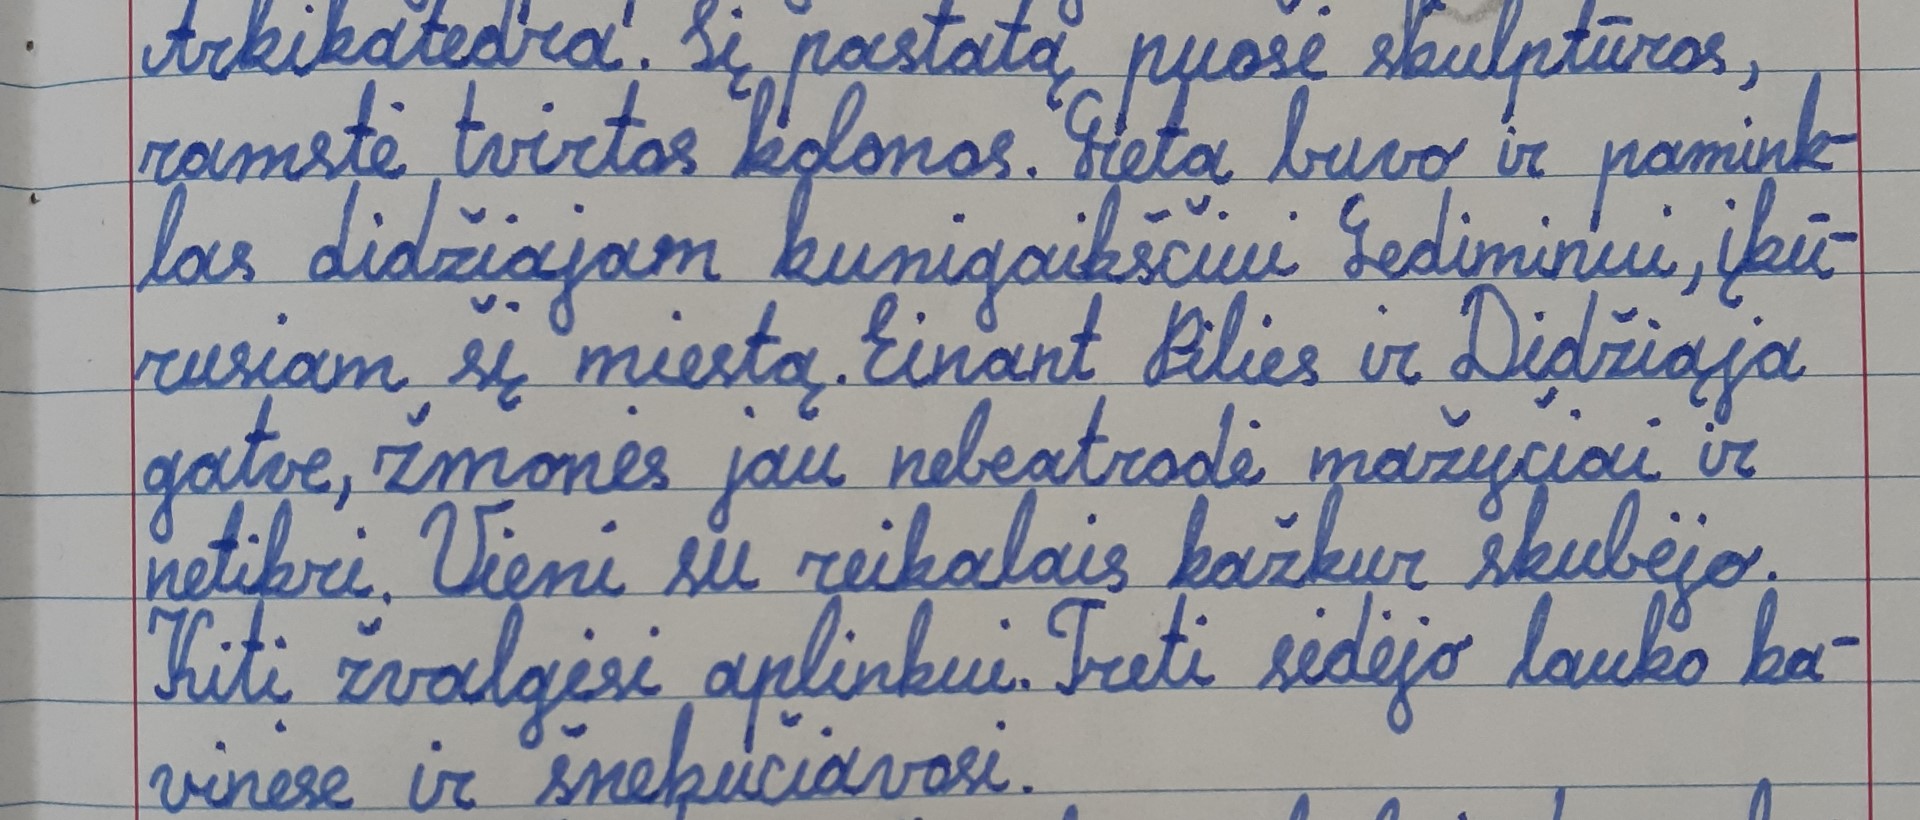 Arkikatedra. Šį pastatą puošė skulptūros,
ramstė tvirtos kolonos. Greta buvo ir pamink-
las didžiajam kunigaikščiui Gediminui, įkū-
rusiam šį miestą. Einant Pilies ir Didžiąja
gatve, žmonės jau nebeatrodė mažyčiai ir
netikri. Vieni su reikalais kažkur skubėjo.
Kiti žvalgėsi aplinkui. Treti sėdėjo lauko ka-
vinėse ir šnekučiavosi.